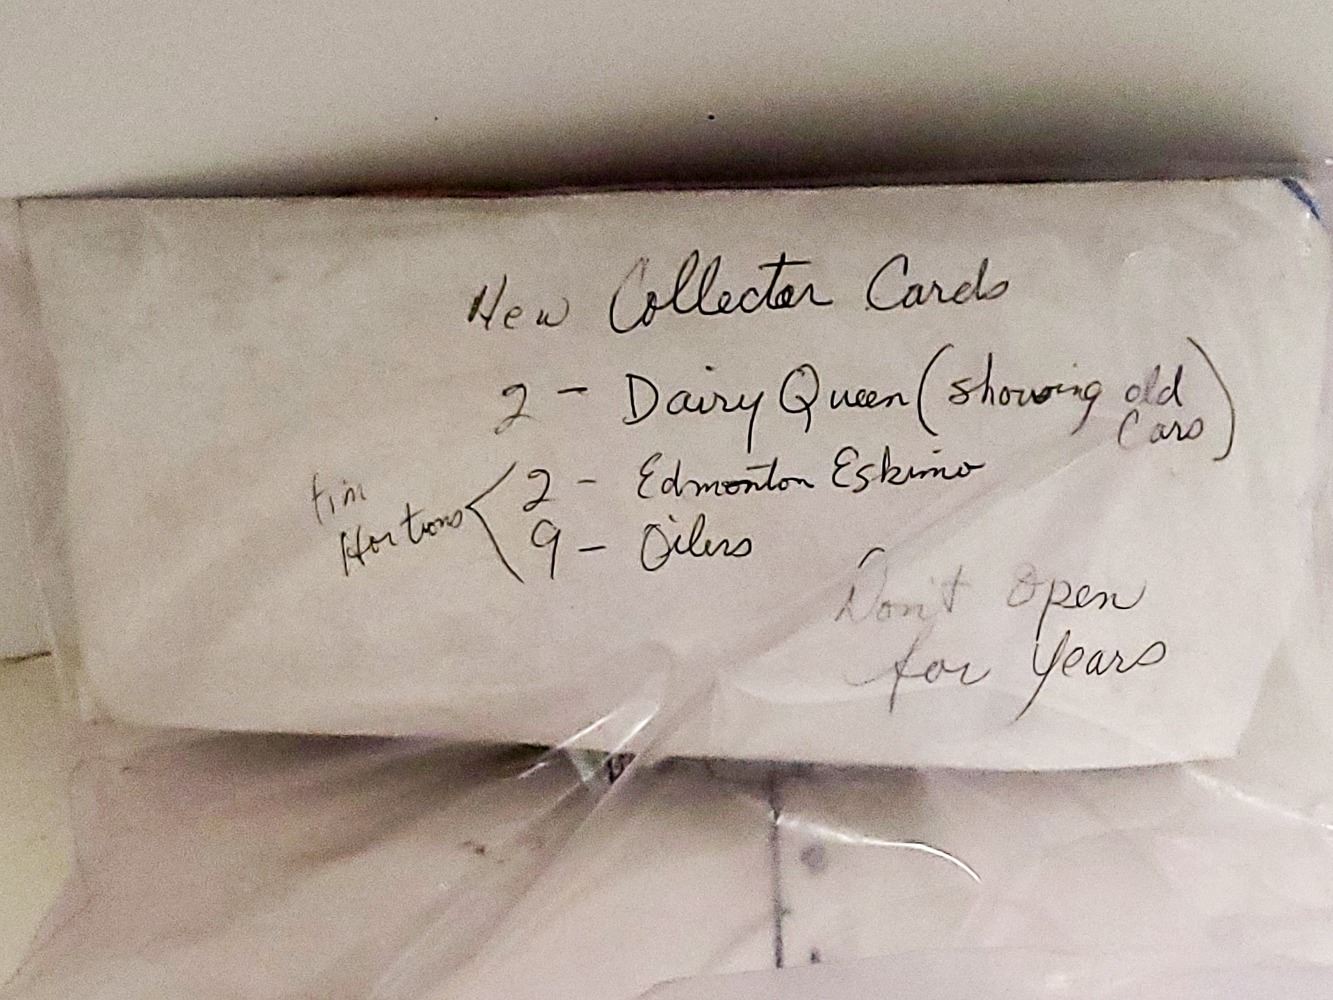 New Collector Cards
2 - Dairy Queen (showing old Cars)
Tim Hortons < 2 - Edmonton Eskimo
9 - Oilers
Don't Open
for Years